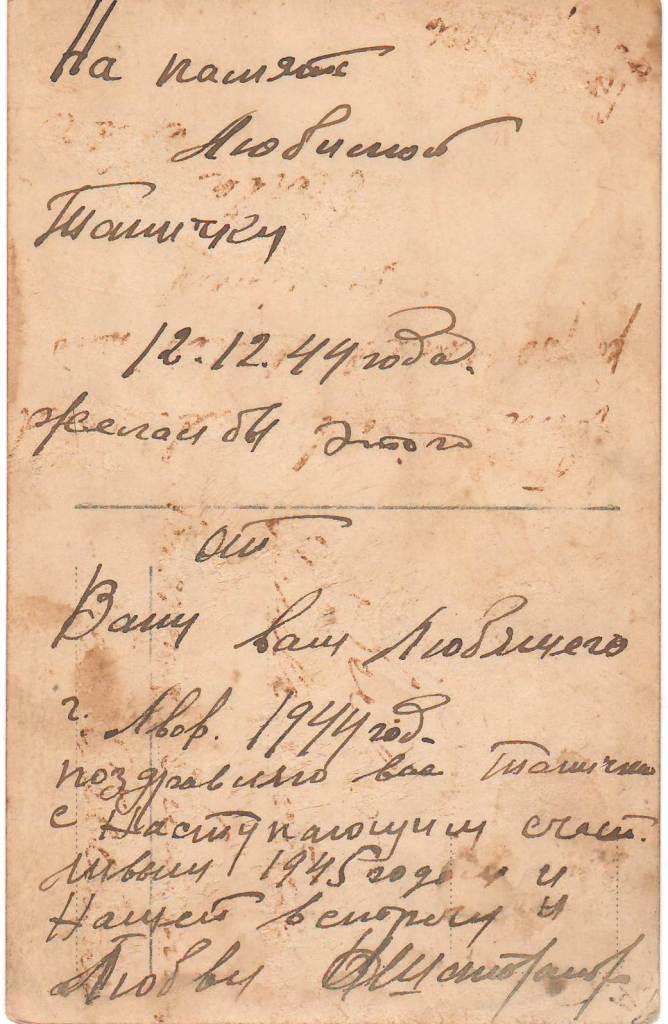 На память
Любимой
Танички
12.12.44 года.
желал бы этого
от
Вани вам Любящего
г. Львов. 1944 год.
поздравляю вас Таничка
с Наступающим счаст.
ливым 1945 годом и
Нашей встречи и
Любви